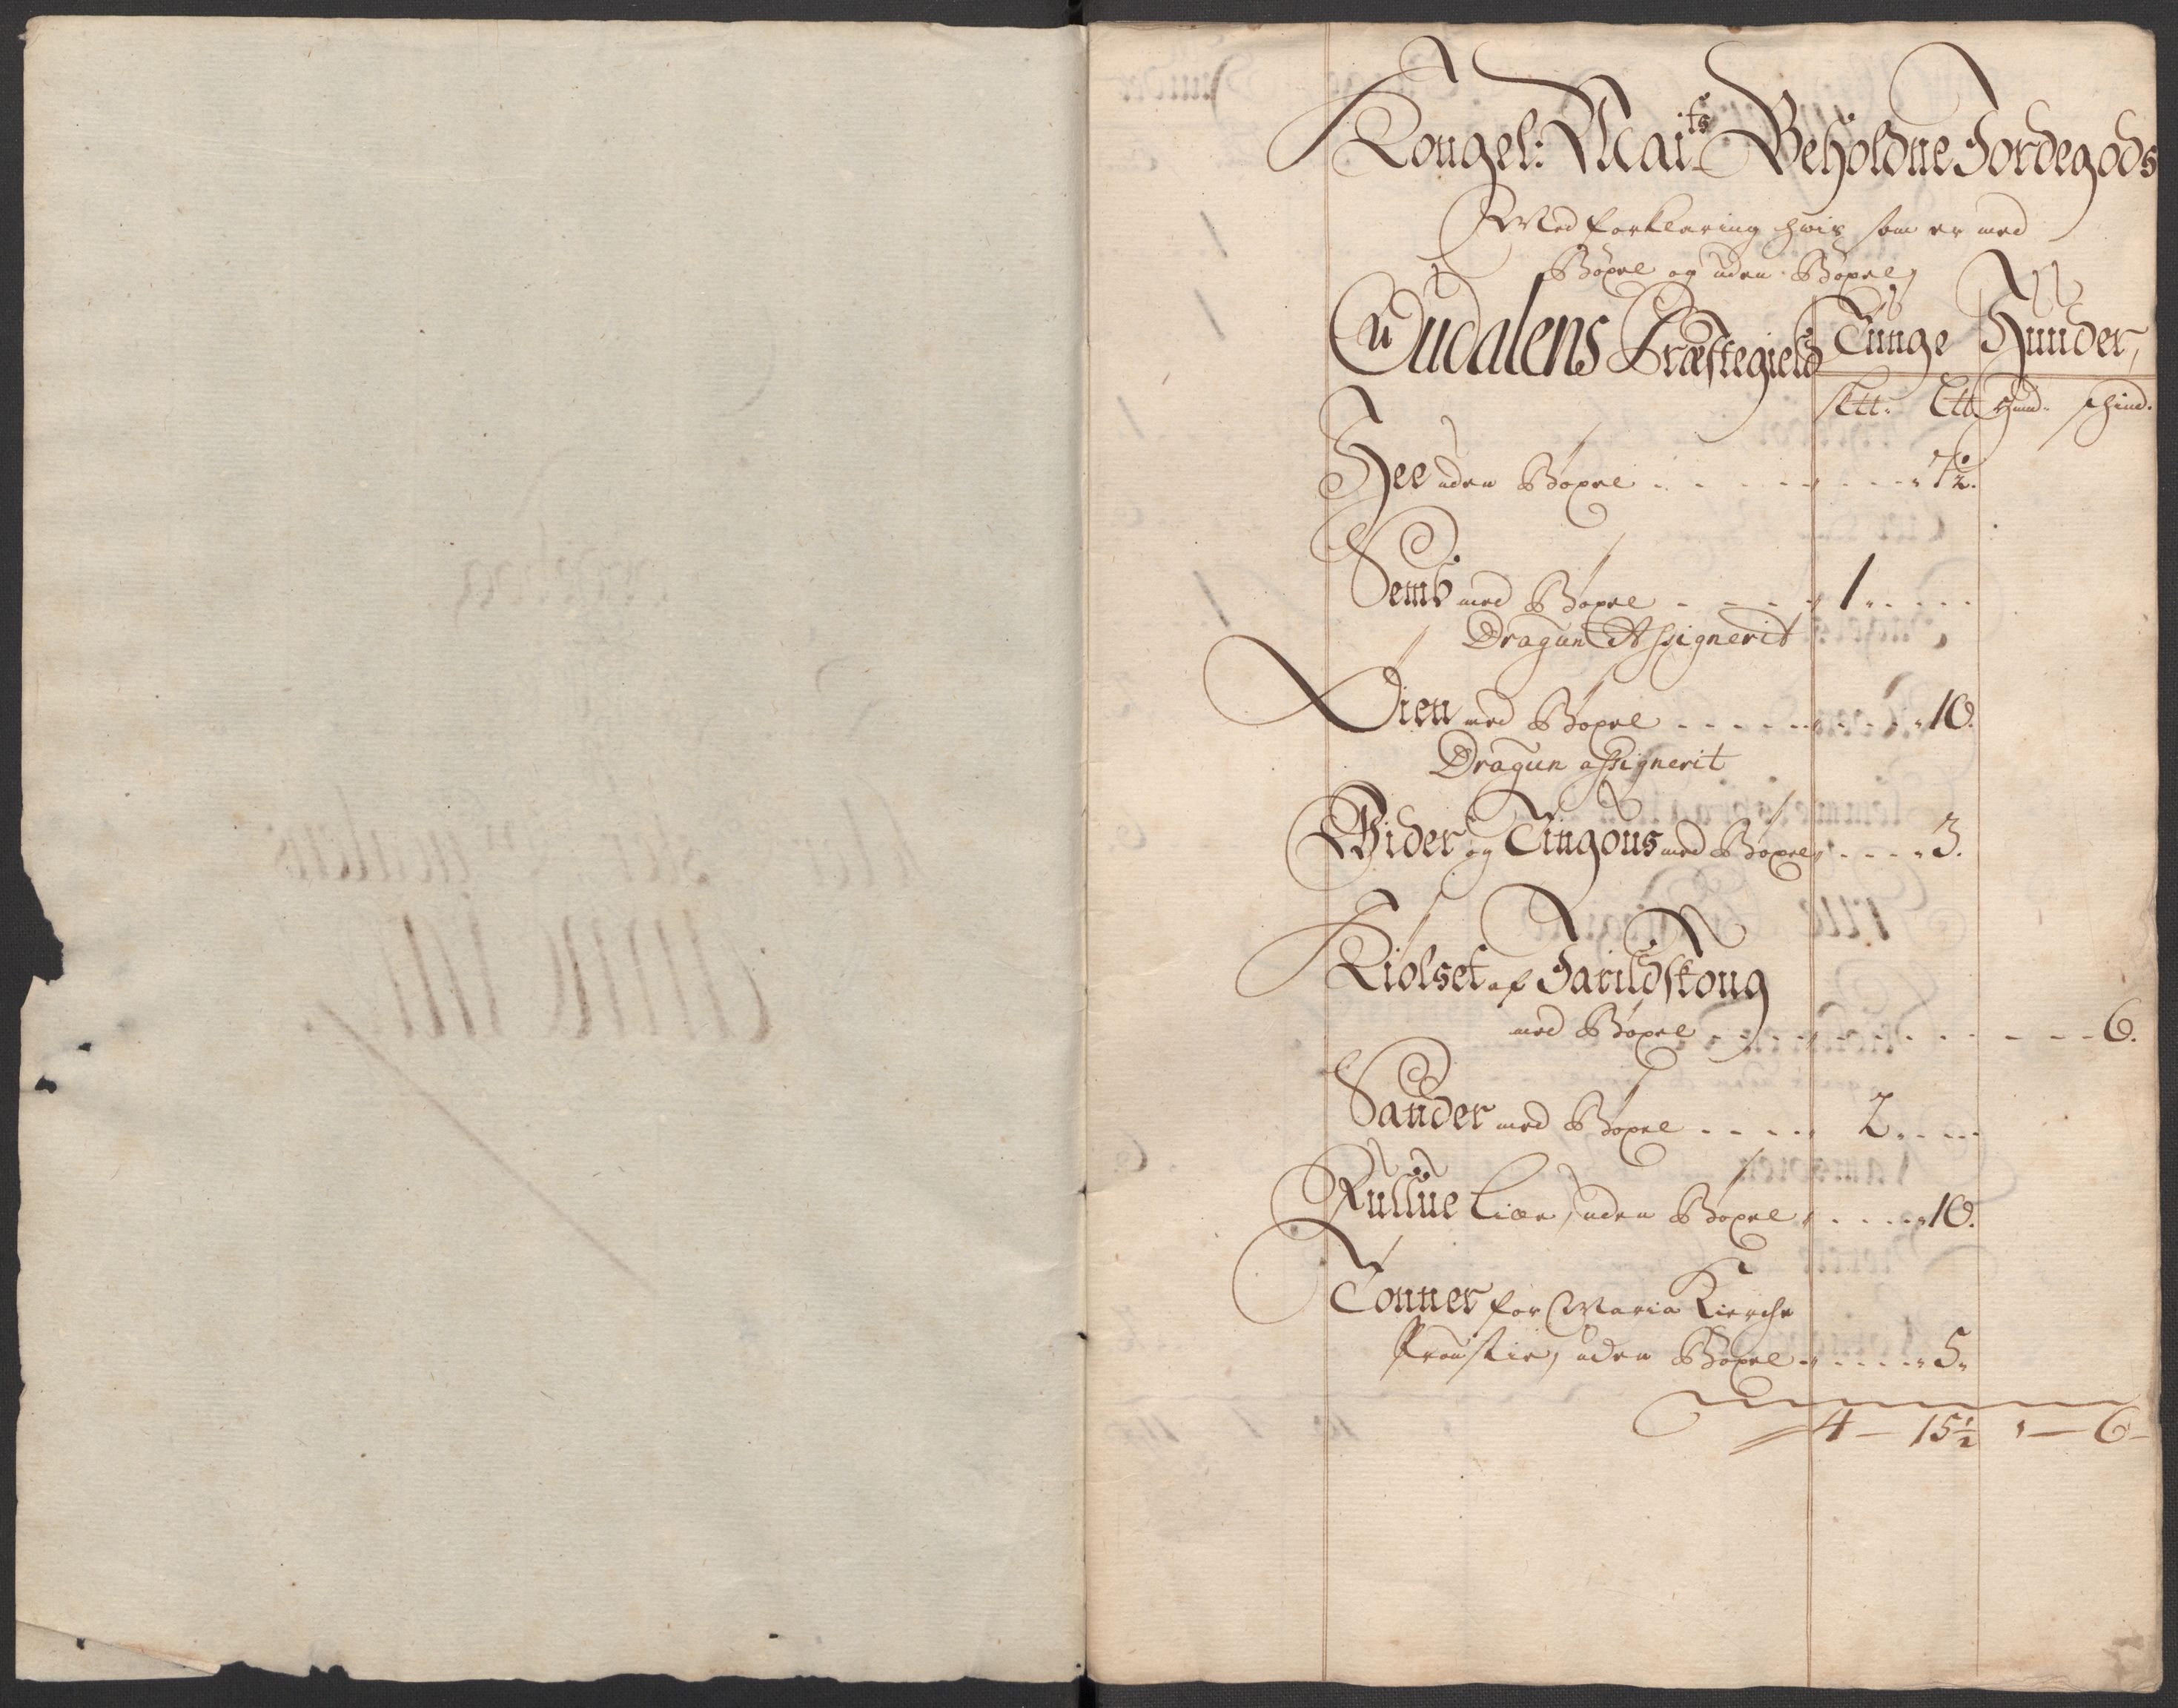 Kongel: Maits Beholdne Jordegods
Med forklaring hvis som er med
Bøxel og uden Bøxel,
Oudalens Præstegield Tunge Hunder,
s℔: L℔ Hund. schind.
Hee uden Bøxel . . . . . . . . 7½.
Semb med Bøxel . . . . 1 . . . .
Dragun Assignerit
Øien med Bøxel . . . . . . . . 10.
Dragun assignerit
Wider og Tingous med Bøxel . . . . 3.
Kiølset af Jarildskoug
med Bøxel . . . . . . . . . . . . 6.
Sander med Bøxel . . . . 2 . . . .
Rullue Lier, uden Bøxel . . . . 10.
Tonner for Maria Kierche
Proustie, uden Bøxel . . . . . . 5.
4 — 15½ " — 6 —